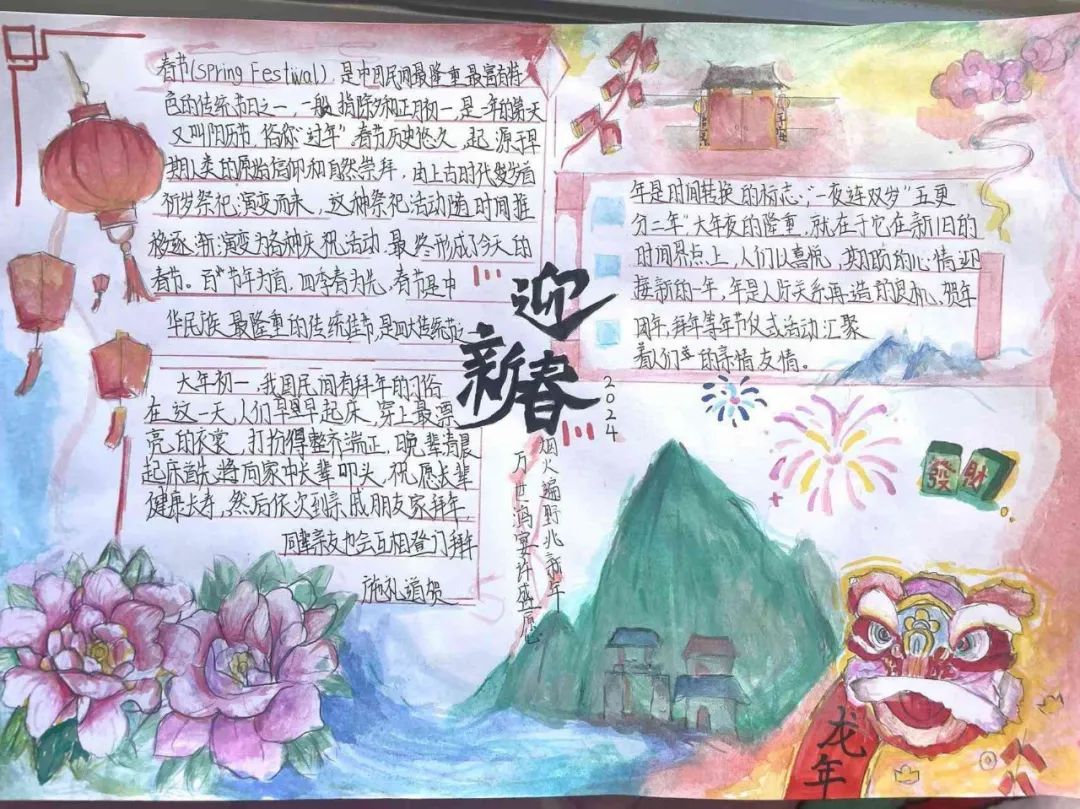 春节(Spring Festiwal)，是中国民间最隆重最富有特
色的传统节日之一，一般指除夕和正月初一，是一年的第一天
又叫阴历节，俗称"过年"。春节历史悠久，起源于早
期人类的原始信仰和自然崇拜，由上古时代岁首
祈岁祭祀演变而来，这种祭祀活动随时间推
移逐渐演变为各种庆祝活动，最终形成了今天的
春节。百节年为首，四季春为先，春节是中
华民族最隆重的传统佳节，是四大传统节之一
大年初一，我国民间有拜年的习俗
在这一天，人们早早起床，穿上最漂
亮的衣裳，打扮得整齐端正，晚辈清晨
起床首先将向家中长辈叩头，祝愿长辈
健康长寿，然后依次到亲戚朋友家拜年
同辈亲友也会互相登门拜年
施礼道贺
迎
新春
2024
烟火遍野兆新年
万世鸿宴许盛愿
年是时间转换的标志；"一夜连双岁"五更
分二年"大年夜的隆重，就在于它在新旧的
时间界点上，人们以喜悦，期盼的心情迎
接新的一年，年是人际关系再造的良机，贺年
拜年等年节仪式活动汇聚
着人们的亲情友情。
發 財
龙年